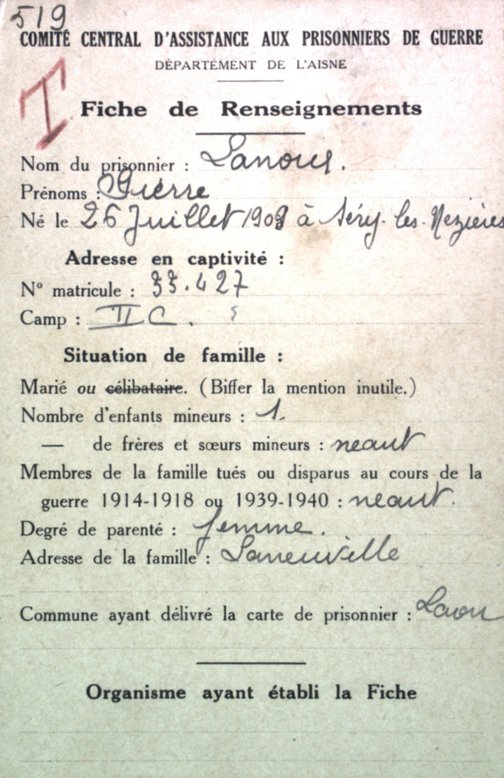 519
COMITÉ CENTRAL D'ASSISTANCE AUX PRISONNIERS DE GUERRE
DÉPARTEMENT DE L'AISNE
I
Fiche de Renseignements
Nom du prisonnier : Lanous.
Prénoms : Pierre
Né le 26 Juillet 1908 à Séry-les-Mezières
Adresse en captivité :
N° matricule : 33.427
Camp : II C.
Situation de famille :
Marié ou célibataire. (Biffer la mention inutile.)
Nombre d'enfants mineurs : 1.
— de frères et sœurs mineurs : neant
Membres de la famille tués ou disparus au cours de la
guerre 1914-1918 ou 1939-1940 : neant.
Degré de parenté : femme.
Adresse de la famille : Laneuville
Commune ayant délivré la carte de prisonnier : Laon
Organisme ayant établi la Fiche